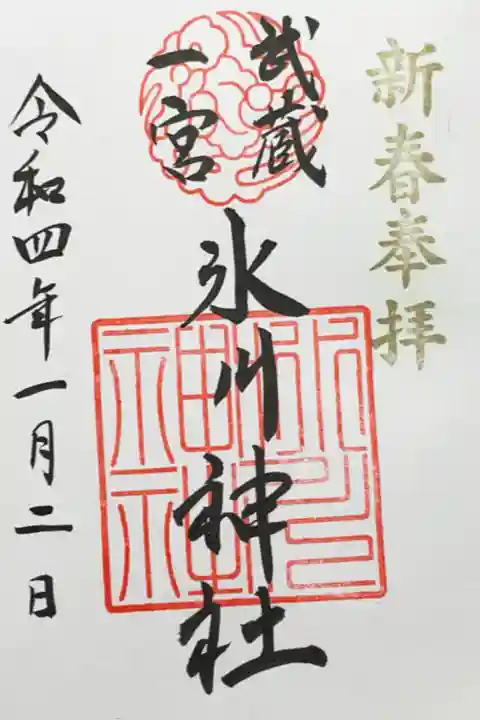 新春奉拝
武蔵
一宮
氷川神社
氷川
神社
令和四年一月二日